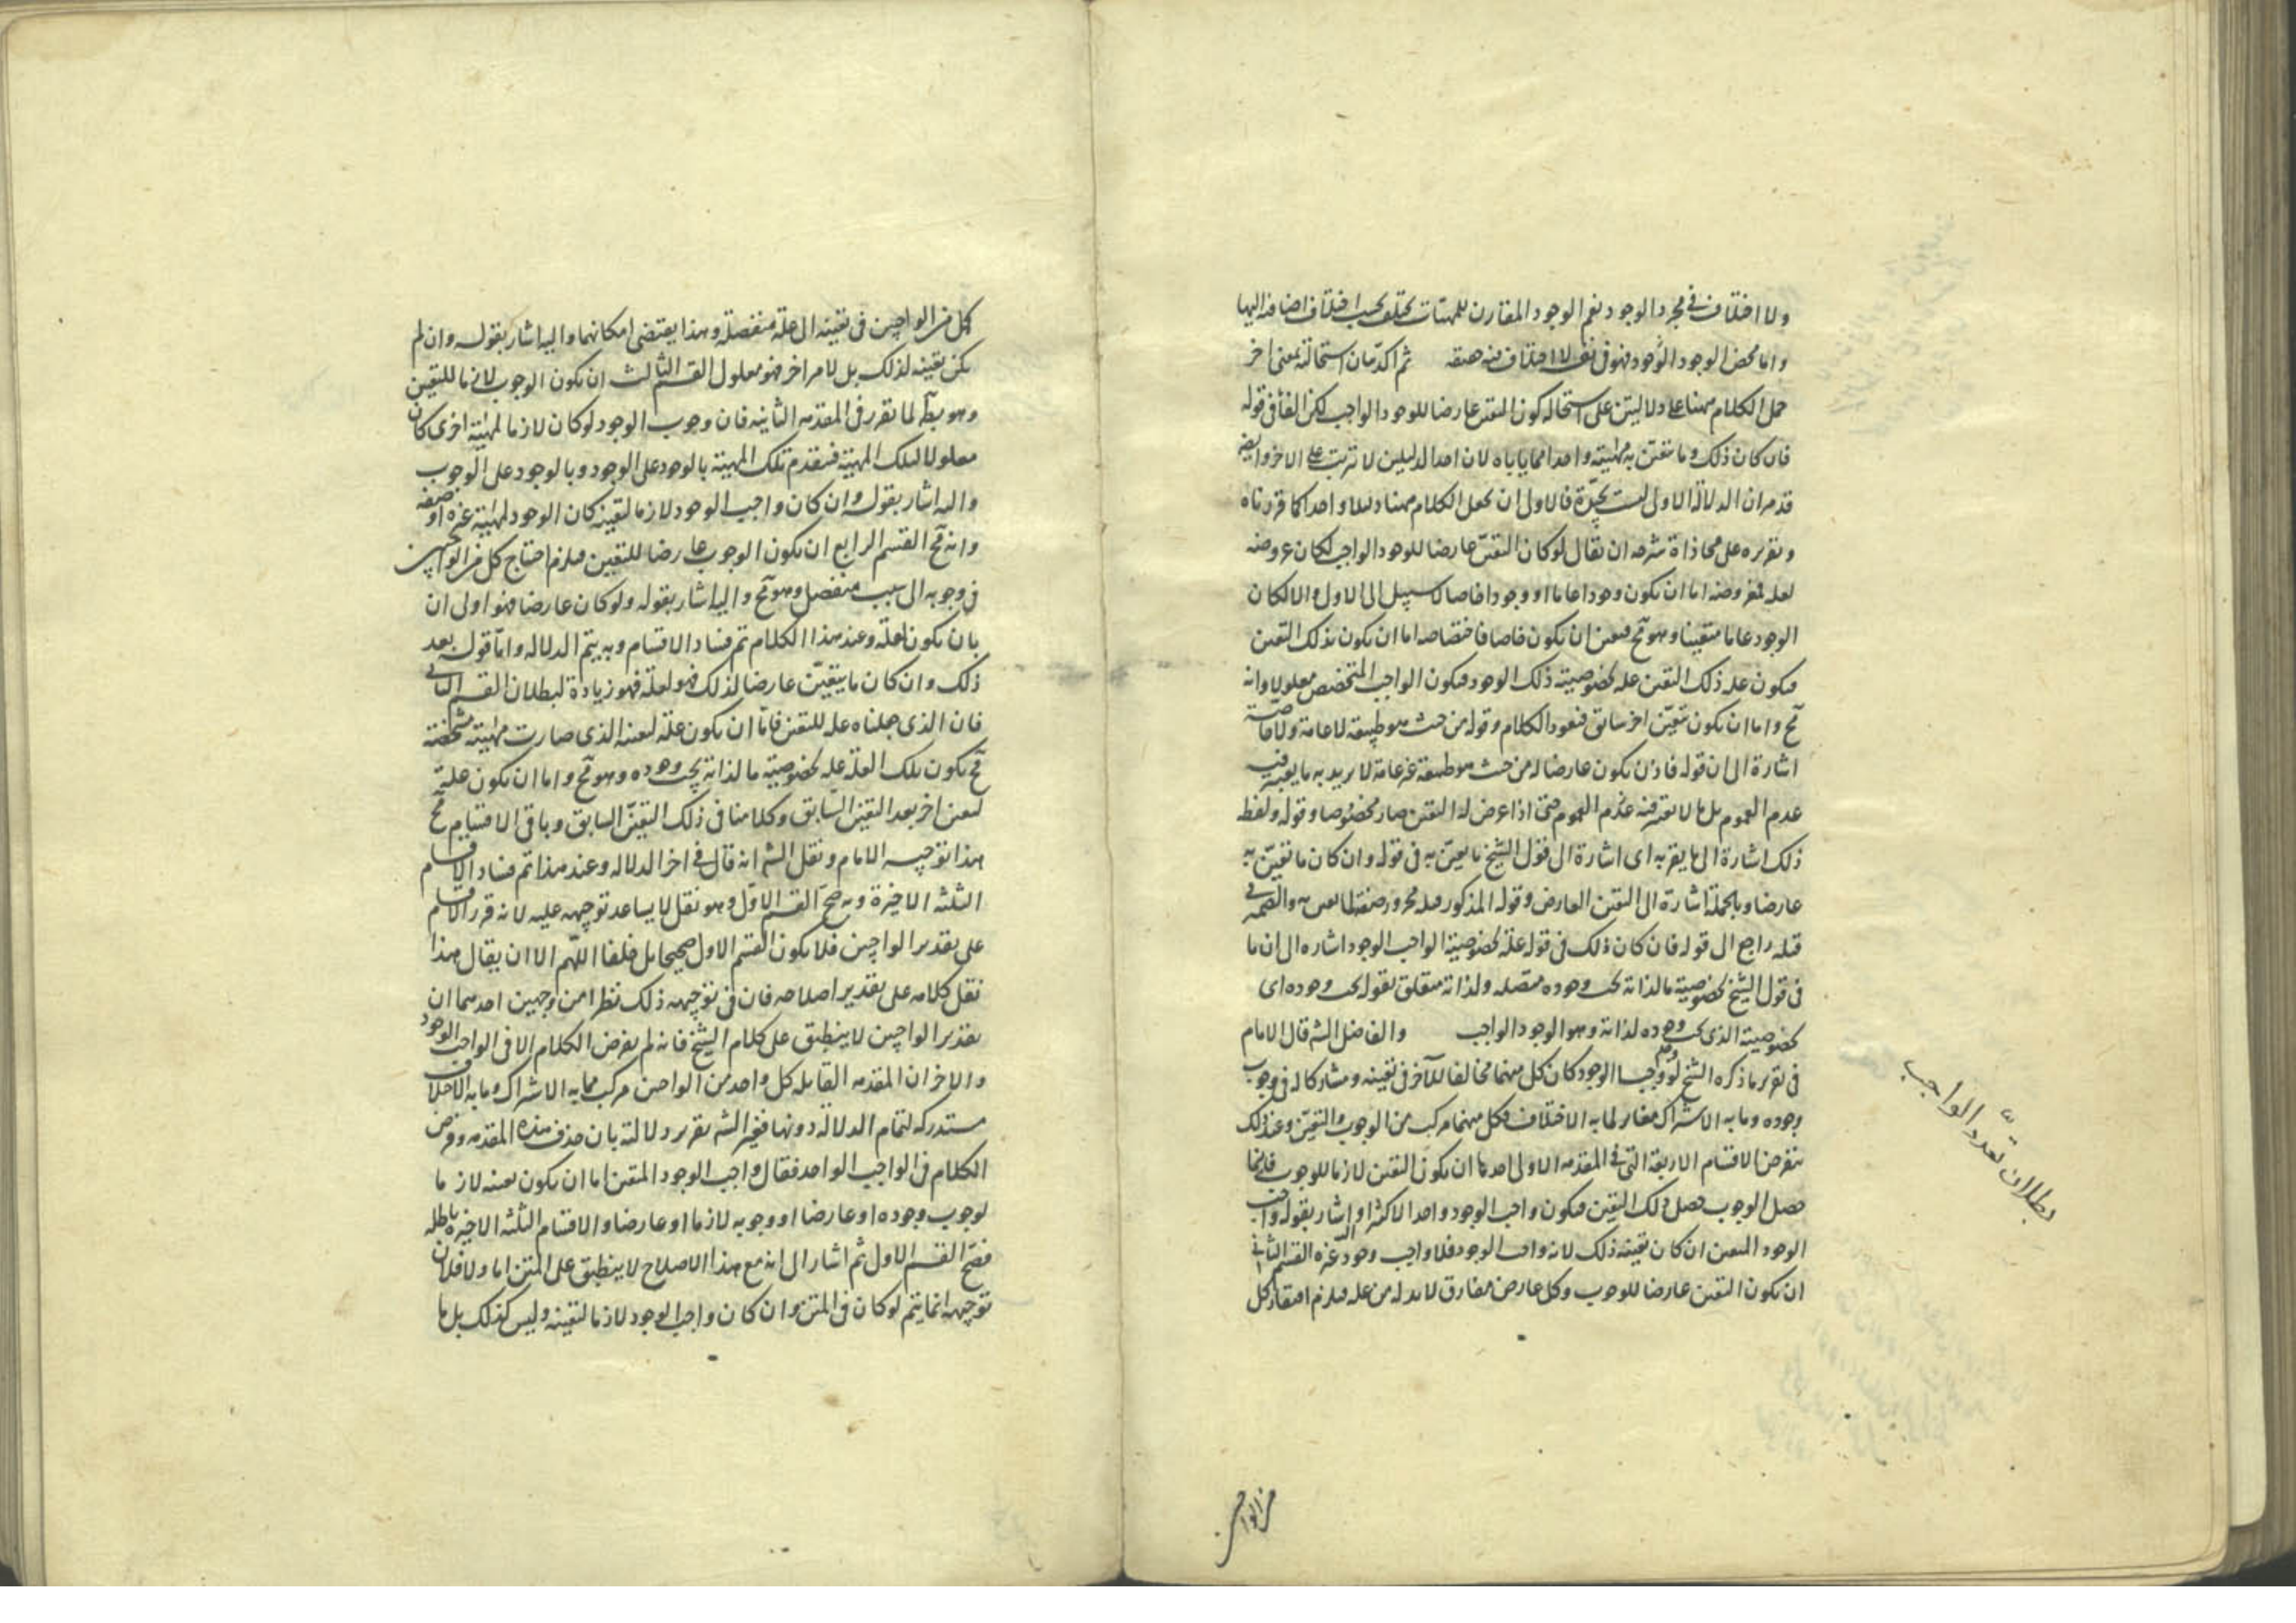 ولا اختلاف في مجرد الوجود نعم الوجود المقارن للمهيات يختلف بحسب اختلاف اضافة اليها
واما محض الوجود الوجود فهو في نفسه لا اختلاف فيه حقيقة ثم اكد بيان استحالته بمعنى اخر
حمل الكلام ههنا على دلالتين على استحالة كون التعين عارضا للوجود الواجب لكن الفاء في قوله
فان كان ذلك وما تتعين به مهيته واحدا مما ياباه لان احد الدليلين لا ترتب على الاخر وايضا
قد مر ان الدلالة الاولى ليست بحيدة فالاولى ان يجعل الكلام ههنا دليلا واحدا كما قررناه
وتقريره على محاذاة شرحه ان يقال لو كان التعين عارضا للوجود الواجب لكان عروضه
لعلة فمعروضه اما ان يكون وجودا عاما او وجودا خاصا لا سبيل الى الاول والا لكان
الوجود عاما متعينا وهو مح فتعين ان يكون خاصا فاختصاصه اما ان يكون بذلك التعين
فيكون علة ذلك التعين علة لخصوصية ذلك الوجود فيكون الواجب المتخصص معلولا وانه
مح واما ان يكون بتعين اخر سابق فنعود الكلام وقوله من حيث هو طبيعة لا عامة ولا خاصة
اشارة الى ان قوله فاذن يكون عارضا له من حيث هو طبيعة غير عامة لا يريد به ما يعتبر فيه
عدم العموم بل ما لا يعتبر فيه عدم العموم حتى اذا عرض له التعين صار مخصوصا وقوله ولفظ
ذلك اشارة الى ما يقر به اى اشارة الى قول الشيخ ما يعين به في قوله وان كان ما تعين به
عارضا وبالجملة اشارة الى التعين العارض وقوله المذكور قبله مجرور صفة لما تعين به والضمير في
قبله راجع الى قوله فان كان ذلك في قوله علة لخصوصية الواجب الوجود اشارة الى ان ما
في قول الشيخ لخصوصية ما لذاته يجب وجوده متصلة ولذاته متعلق بقوله يجب وجوده اى
لخصوصية الذى يجب وجوده لذاته وهو الوجود الواجب والفاضل الشه قال الامام
في تقرير ما ذكره الشيخ لو وجد واجبا الوجود كان كل منهما مخالفا للآخر في تعينه ومشاركا له في وجوب
وجوده وما به الاشتراك مغاير لما به الاختلاف فكل منهما مركب من الوجوب والتعين وعند ذلك
نفرض الاقسام الاربعة التى في المقدمة الاولى احدها ان يكون التعين لازما للوجوب فاينما
حصل الوجوب حصل ذلك التعين فيكون واجب الوجود واحدا لا كثيرا واشار بقوله واجب
الوجود المتعين ان كان تعينه ذلك لانه واجب الوجود فلا واجب وجود غيره القسم الثاني
ان يكون التعين عارضا للوجوب وكل عارض مفارق لا بد له من علة فيلزم افتقار كل
بطلان تعدد الواجب
من الواجبين
كل من الواجبين في تعينه الى علة منفصلة وهذا يقتضى امكانهما واليه اشار بقوله وان لم
يكن تعينه لذلك بل لامر اخر فهو معلول القسم الثالث ان يكون الوجوب لازما للتعين
وهو بط لما تقرر في المقدمة الثانية فان وجوب الوجود لو كان لازما لمهية اخرى كان
معلولا لتلك المهية فتتقدم تلك المهية بالوجود على الوجود وبالوجود على الوجوب
واليه اشار بقوله وان كان واجب الوجود لازما لتعينه كان الوجود لمهية غيره او صفة
وانه مح القسم الرابع ان يكون الوجوب عارضا للتعين فيلزم احتياج كل من الواجبين
في وجوبه الى سبب منفصل وهو مح واليه اشار بقوله ولو كان عارضا فهو اولى ان
بان يكون لعلة وعند هذا الكلام تم فساد الاقسام وبه يتم الدلالة واما قوله بعد
ذلك وان كان ما يتعين عارضا لذلك فهو لعلة فهو زيادة لبطلان القسم الثاني
فان الذى جعلناه علة للتعين فاما ان يكون علة لعينه الذى صارت مهيته متشخصة
فح يكون تلك العلة علة لخصوصية ما لذاته يجب وجوده وهو مح واما ان يكون علة
لتعين اخر بعد التعين السابق وكلامنا في ذلك التعين السابق وباقى الاقسام مح
هذا توجيه الامام ونقل الشه انه قال في اخر الدلالة وعند هذا تم فساد الاقسام
الثلثة الاخيرة وبه صح القسم الاول وهو نقل لا يساعد توجيهه عليه لانه قرر الاقسام
على تقدير الواجبين فلا يكون القسم الاول صحيحا بل خلفا اللهم الا ان يقال هذا
نقل كلامه على تقدير اصلاحه فان في توجيهه ذلك نظرا من وجهين احدهما ان
تقدير الواجبين لا ينطبق على كلام الشيخ فانه لم يفرض الكلام الا في الواجب الوجود
والاخر ان المقدمة القايلة كل واحد من الواجبين مركب مما به الاشتراك وما به الاختلاف
مستدركة لتمام الدلالة دونها فغير الشه تقرير دلالته بان حذف هذه المقدمة وفرض
الكلام في الواجب الواحد فقال واجب الوجود المتعين اما ان يكون تعينه لازما
لوجوب وجوده او عارضا او وجوبه لازما او عارضا والاقسام الثلثة الاخيرة باطلة
فصح القسم الاول ثم اشار الى انه مع هذا الاصلاح لا ينطبق على المتن اما اولا فلان
توجيهه انما يتم لو كان في المتن وان كان واجب الوجود لازما لتعينه وليس كذلك بل ما